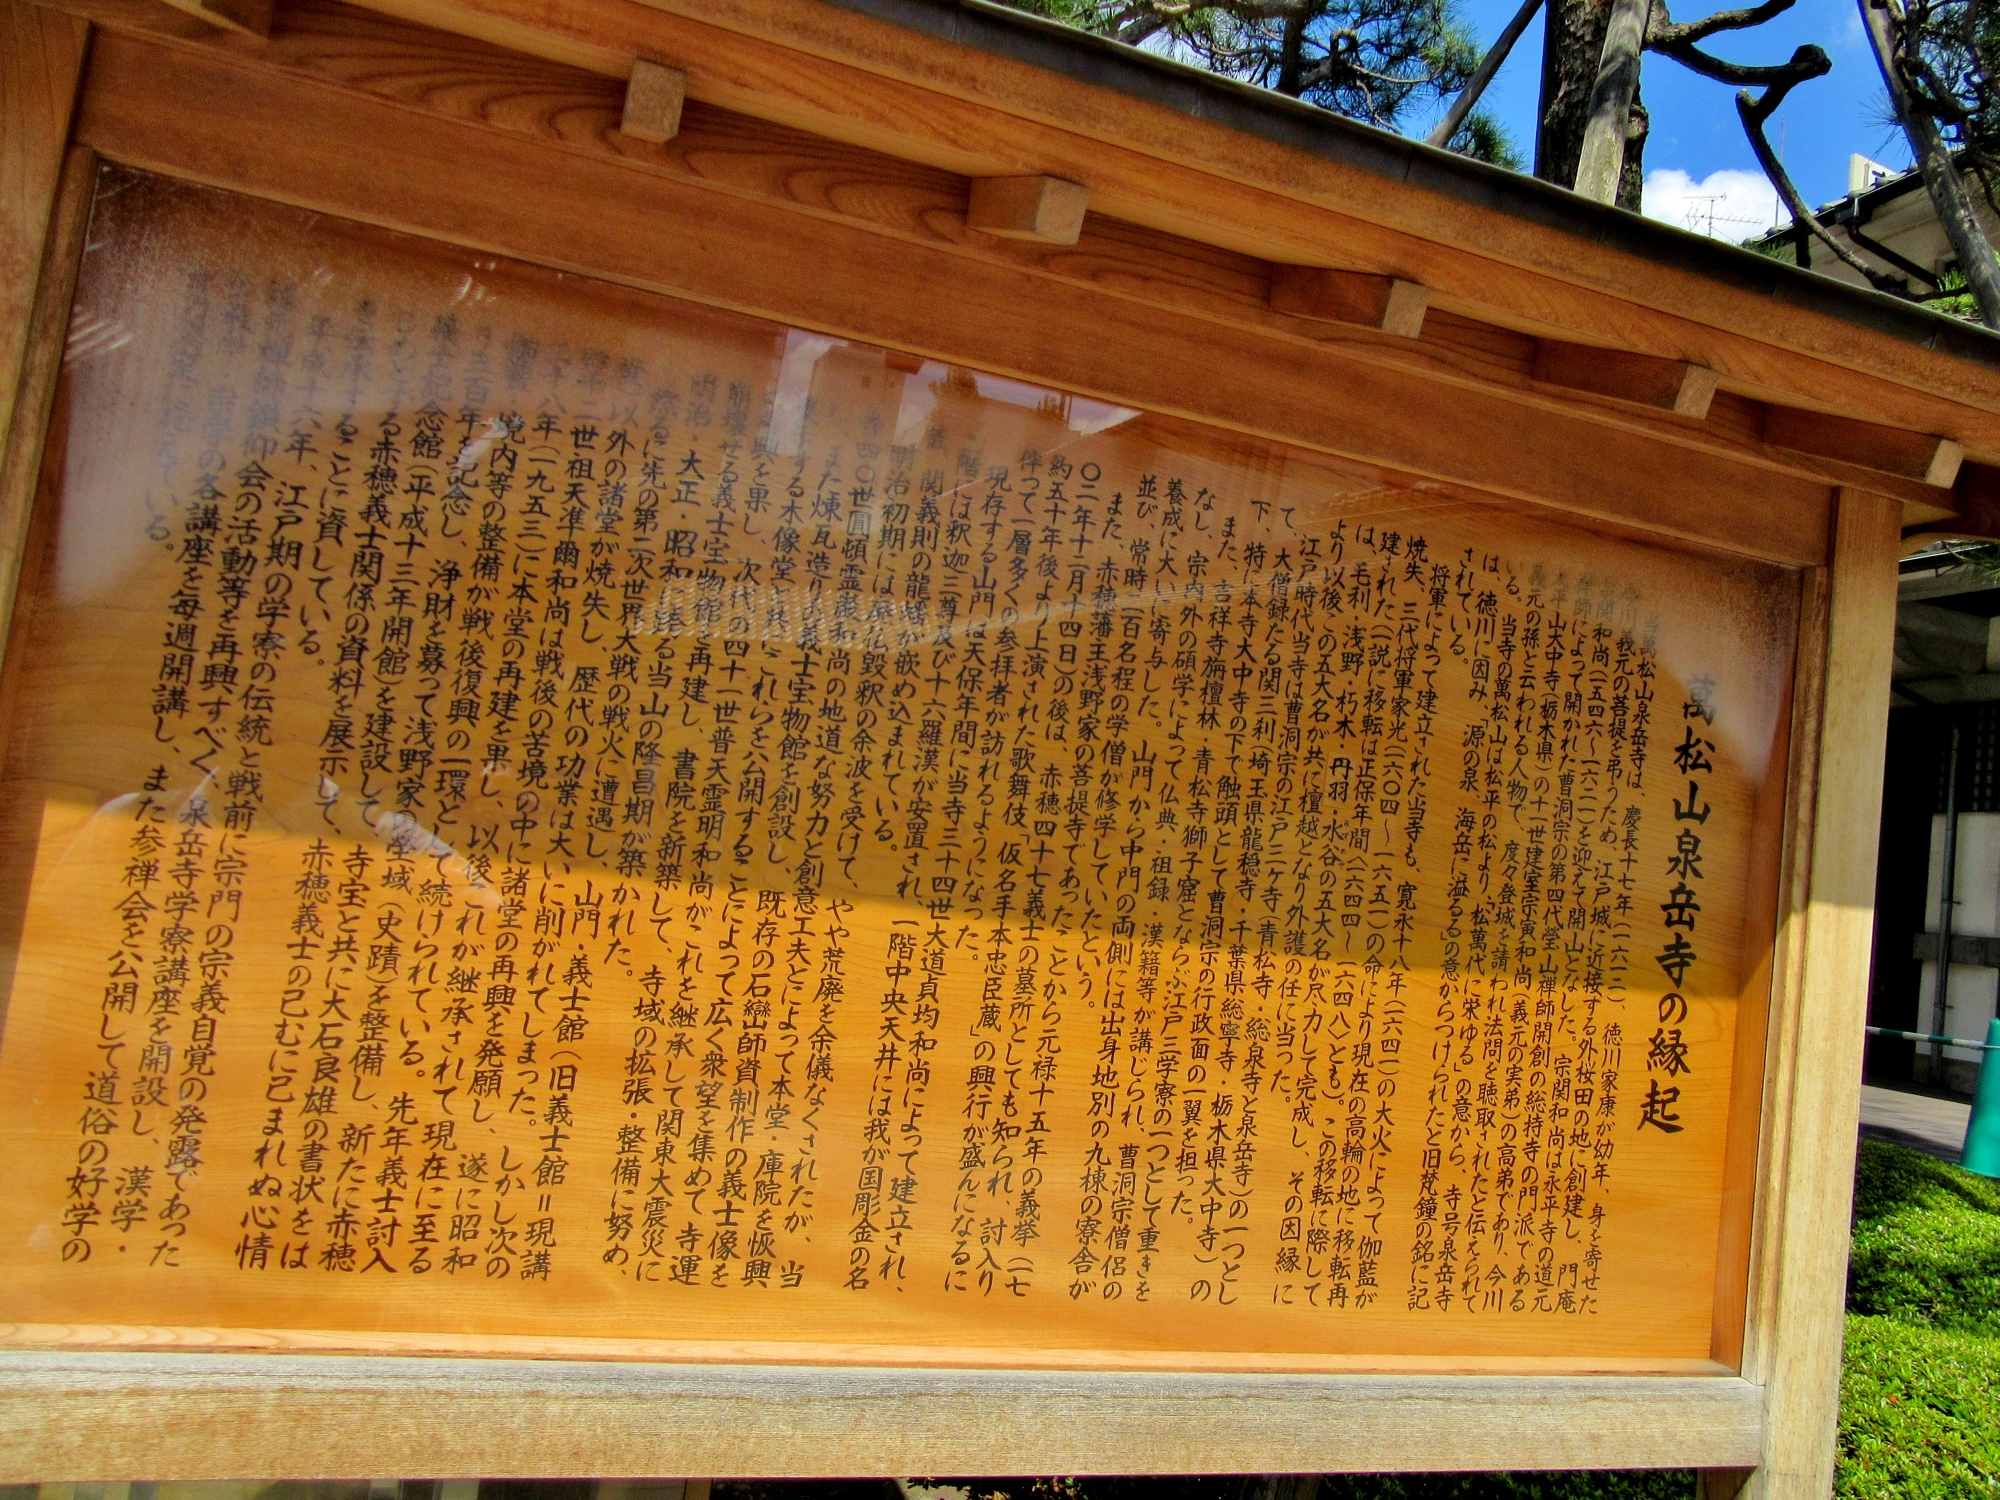 萬松山泉岳寺の縁起
萬松山泉岳寺は、慶長十七年(一六一二)、徳川家康が幼年、身を寄せた
今川義元の菩提を弔うため、江戸城に近接する外桜田の地に創建し、門庵
宗関和尚(一五四六〜一六二一)を迎えて開山となした。宗関和尚は永平寺の道元
禅師によって開かれた曹洞宗の第四代瑩山禅師開創の総持寺の門派である
山大中寺(栃木県)の十一世建室宗寅和尚(義元の実弟)の高弟であり、今川
義元の孫と云われる人物で、度々登城を請われ法問を聴取されたと伝えられて
いる。当寺の萬松山は松平の松より、「松萬代に栄ゆる」の意から、寺号泉岳寺
は、徳川に因み、「源の泉、海岳に溢るる」の意からつけられたと旧梵鐘の銘に記
されている。
将軍によって建立された当寺も、寛永十八年(一六四一)の大火によって伽藍が
焼失、三代将軍家光(一六〇四〜一六五一)の命により現在の高輪の地に移転再
建された(一説に移転は正保年間〈一六四四〜一六四八〉とも)。この移転に際して
は、毛利・浅野・朽木・丹羽・水谷の五大名が尽力して完成し、その因縁に
より以後この五大名が共に檀越となり外護の任に当った。
江戸時代当寺は曹洞宗の江戸三ヶ寺(青松寺・総泉寺と泉岳寺)の一つとし
て、大僧録たる関三刹(埼玉県龍穏寺・千葉県総寧寺・栃木県大中寺)の
下、特に本寺大中寺の下で触頭として曹洞宗の行政面の一翼を担った。
また、吉祥寺旃檀林・青松寺獅子窟とならぶ江戸三学寮の一つとして重きを
なし、宗内外の碩学によって仏典・祖録・漢籍等が講じられ、曹洞宗僧侶の
養成に大いに寄与した。山門から中門の両側には出身地別の九棟の寮舎が
並び、常時二百名程の学僧が修学していたという。
また、赤穂藩主浅野家の菩提寺であったことから元禄十五年の義挙(一七
〇二年十二月十四日)の後は、赤穂四十七義士の墓所としても知られ、討入り
約五十年後より上演された歌舞伎、「仮名手本忠臣蔵」の興行が盛んになるに
伴って一層多くの参拝者が訪れるようになった。
現存する山門は天保年間に当寺三十四世大道貞均和尚によって建立され、
二階には釈迦三尊及び十六羅漢が安置され、一階中央天井には我が国彫金の名
関義則の龍蟠が嵌め込まれている。
明治初期には廃仏毀釈の余波を受けて、やや荒廃を余儀なくされたが、当
寺四〇世圓頓霊巌和尚の地道な努力と創意工夫とによって本堂・庫院を恢興
また煉瓦造りの義士宝物館を創設し、既存の石巒山師資制作の義士像を
する木像堂と共にこれらを公開することによって広く衆望を集めて寺運
興を果し、次代の四十一世普天霊明和尚がこれを継承して関東大震災に
崩壊せる義士宝物館を再建し、書院を新築して、寺域の拡張・整備に努め、
明治・大正・昭和に誇る当山の隆昌期が築かれた。
然るに先の第二次世界大戦の戦火に遭遇し、山門・義士館(旧義士館=現講
堂)以外の諸堂が焼失し、歴代の功業は大いに削がれてしまった。しかし次の
四十二世祖天準爾和尚は戦後の苦境の中に諸堂の再興を発願し、遂に昭和
二十八年(一九五三)に本堂の再建を果し、以後これが継承されて現在に至る
境内等の整備が戦後復興の一環として続けられている。先年義士討入
り三百年を記念し、浄財を募って浅野家の塋域(史蹟)を整備し、新たに赤穂
義士記念館(平成十三年開館)を建設して、寺宝と共に大石良雄の書状をは
じめとする赤穂義士関係の資料を展示して、赤穂義士の已むに已まれぬ心情
を伝承することに資している。
平成十六年、江戸期の学寮の伝統と戦前に宗門の宗義自覚の発露であった
師鑽仰会の活動等を再興すべく、泉岳寺学寮講座を開設し、漢学・
学の各講座を毎週開講し、また参禅会を公開して道俗の好学の
ている。